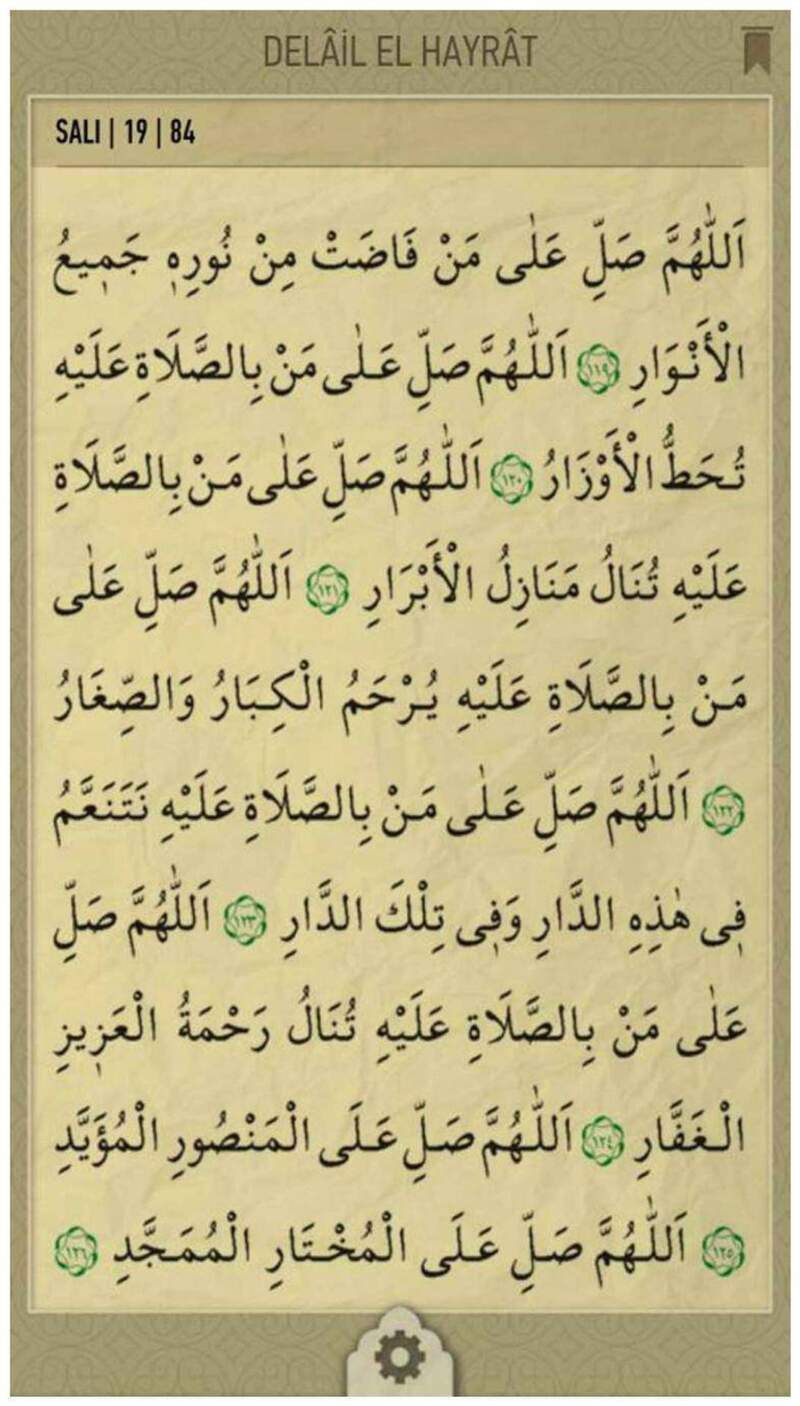 DELÂİL EL HAYRÂT
SALI | 19 | 84
اَللّٰهُمَّ صَلِّ عَلٰى مَنْ فَاضَتْ مِنْ نُورِهٖ جَمٖيعُ
الْأَنْوَارِ ﴿١١٩﴾ اَللّٰهُمَّ صَلِّ عَلٰى مَنْ بِالصَّلَاةِ عَلَيْهِ
تُحَطُّ الْأَوْزَارُ ﴿١٢٠﴾ اَللّٰهُمَّ صَلِّ عَلٰى مَنْ بِالصَّلَاةِ
عَلَيْهِ تُنَالُ مَنَازِلُ الْأَبْرَارِ ﴿١٢١﴾ اَللّٰهُمَّ صَلِّ عَلٰى
مَنْ بِالصَّلَاةِ عَلَيْهِ يُرْحَمُ الْكِبَارُ وَالصِّغَارُ
﴿١٢٢﴾ اَللّٰهُمَّ صَلِّ عَلٰى مَنْ بِالصَّلَاةِ عَلَيْهِ نَتَنَعَّمُ
فٖى هٰذِهِ الدَّارِ وَفٖى تِلْكَ الدَّارِ ﴿١٢٣﴾ اَللّٰهُمَّ صَلِّ
عَلٰى مَنْ بِالصَّلَاةِ عَلَيْهِ تُنَالُ رَحْمَةُ الْعَزٖيزِ
الْغَفَّارِ ﴿١٢٤﴾ اَللّٰهُمَّ صَلِّ عَلَى الْمَنْصُورِ الْمُؤَيَّدِ
﴿١٢٥﴾ اَللّٰهُمَّ صَلِّ عَلَى الْمُخْتَارِ الْمُمَجَّدِ ﴿١٢٦﴾